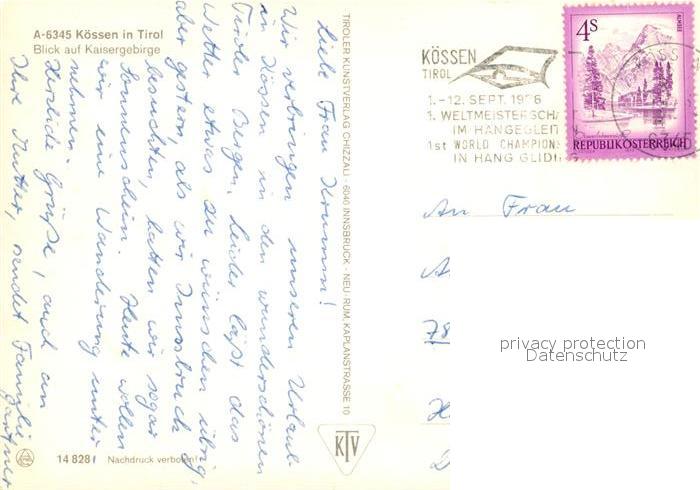 A-6345 Kössen in Tirol
Blick auf Kaisergebirge
Liebe Frau Krumm!
Wir verbringen unseren Urlaub
in Kössen in den wunderschönen
Tiroler Bergen. Leider läßt das
Wetter etwas zu wünschen übrig,
aber gestern, als wir Innsbruck
besuchten, hatten wir sogar
Sonnenschein. Heute wollen
wir eine Wanderung unter
nehmen. Herzliche Grüße, auch an
Ihre Mutter, sendet Familie
Gärtner
14 828 Nachdruck verboten!
TIROLER KUNSTVERLAG CHIZZALI · 6040 INNSBRUCK - NEU-RUM, KAPLANSTRASSE 10
KTV
KÖSSEN
TIROL
1.-12. SEPT. 1976
1. WELTMEISTERSCHA
IM HANGEGLEIT
1st WORLD CHAMPIONS
IN HANG GLIDI
4s
ALMSEE
REPUBLIK ÖSTERREICH
An Frau
78
privacy protection
Datenschutz